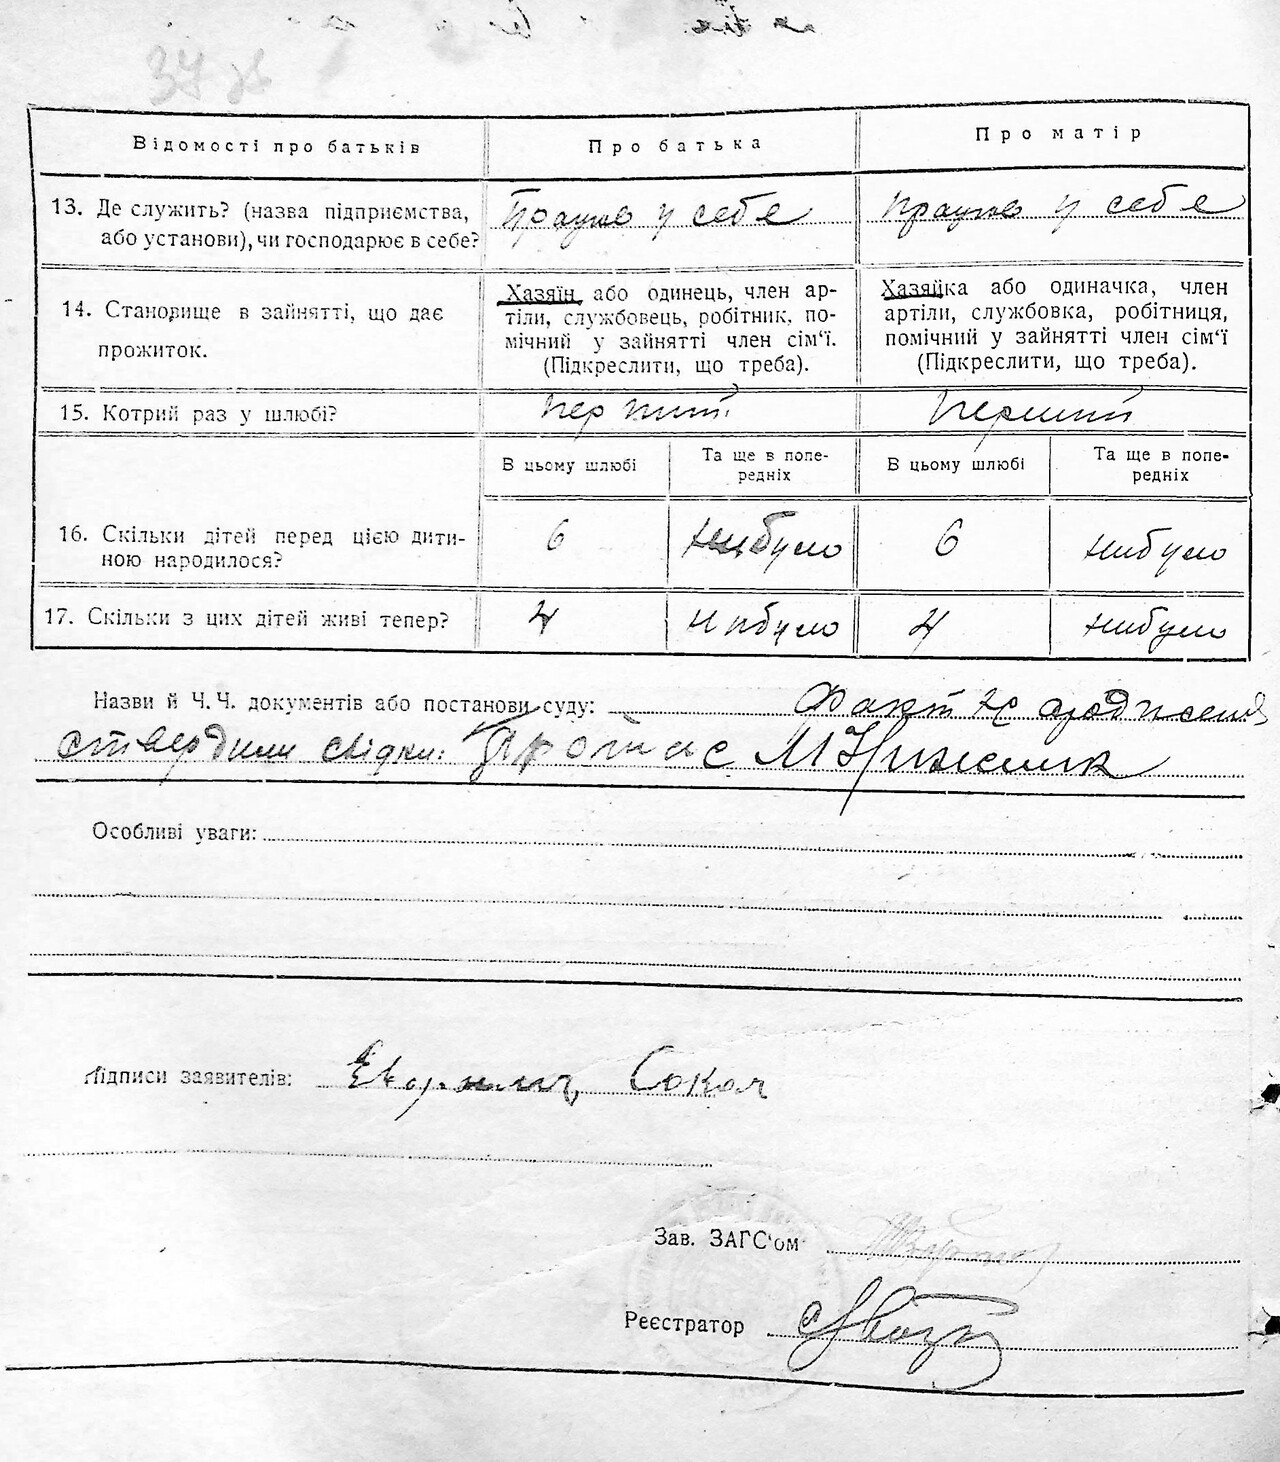 Відомості про батьків Про батька Про матір
13. Де служить? (назва підприємства, або установи), чи господарює в себе? Працює у себе Працює у себе
14. Становище в зайнятті, що дає прожиток.
Хазяїн або одинець, член ар-
тіли, службовець, робітник, по-
мічний у зайнятті член сім'ї.
(Підкреслити, що треба).
Хазяйка або одиначка, член
артіли, службовка, робітниця,
помічний у зайнятті член сім'ї
(Підкреслити, що треба).
15. Котрий раз у шлюбі? перший перший
В цьому шлюбі Та ще в попе-
редніх В цьому шлюбі Та ще в попе-
редніх
16. Скільки дітей перед цією дити-
ною народилося? 6 нибуло 6 нибуло
17. Скільки з цих дітей живі тепер? 4 нибуло 4 нибуло
Назви й Ч. Ч. документів або постанови суду: Факт
ствердили свідки:
Особливі уваги:
Підписи заявителів: Сокол
Зав. ЗАГС'ом
Реєстратор